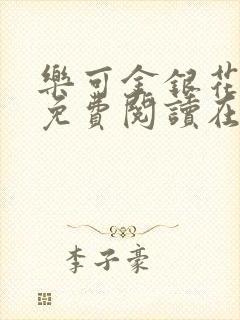 樂可金銀花
免費閱讀在
李子豪